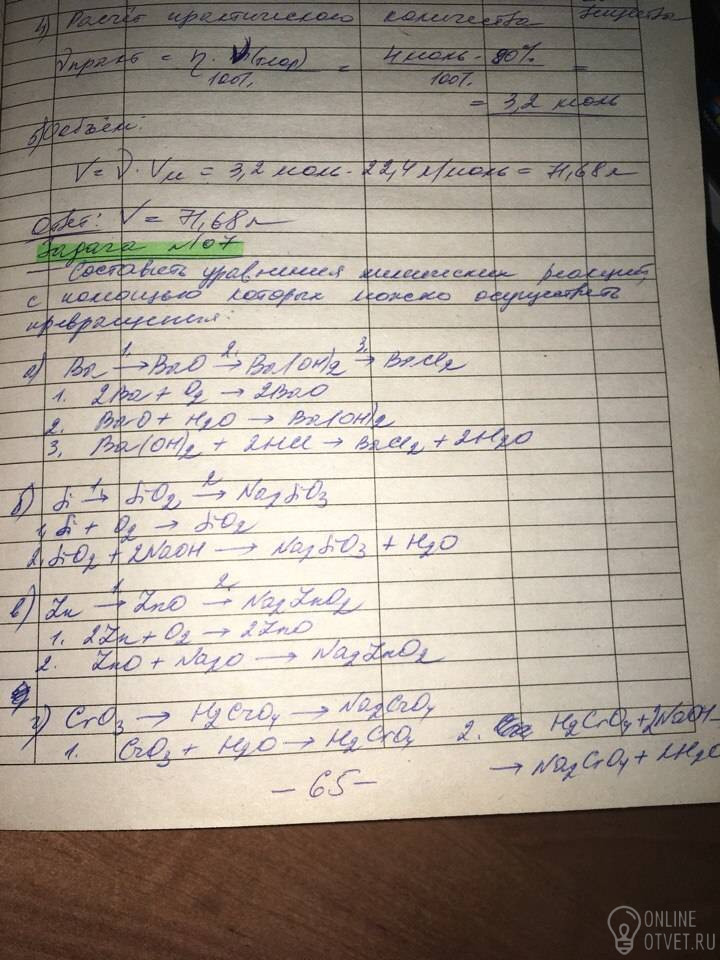 4) Расчёт практического количества вещества
νпракт = η · ν(теор) / 100% = 4 моль · 80% / 100% =
= 3,2 моль
5) Объём:
V = ν · Vм = 3,2 моль · 22,4 л/моль = 71,68 л
Ответ: V = 71,68 л
Задача №07
— Составить уравнения химических реакций,
с помощью которых можно осуществить
превращения:
а) Ba →1. BaO →2. Ba(OH)2 →3. BaCl2
1. 2Ba + O2 → 2BaO
2. BaO + H2O → Ba(OH)2
3. Ba(OH)2 + 2HCl → BaCl2 + 2H2O
б) Si →1. SiO2 →2. Na2SiO3
1. Si + O2 → SiO2
2. SiO2 + 2NaOH → Na2SiO3 + H2O
в) Zn →1. ZnO →2. Na2ZnO2
1. 2Zn + O2 → 2ZnO
2. ZnO + Na2O → Na2ZnO2
г) CrO3 → H2CrO4 → Na2CrO4
1. CrO3 + H2O → H2CrO4 2. H2CrO4 + 2NaOH
→ Na2CrO4 + 2H2O
— 65 —
ONLINE
OTVET.RU